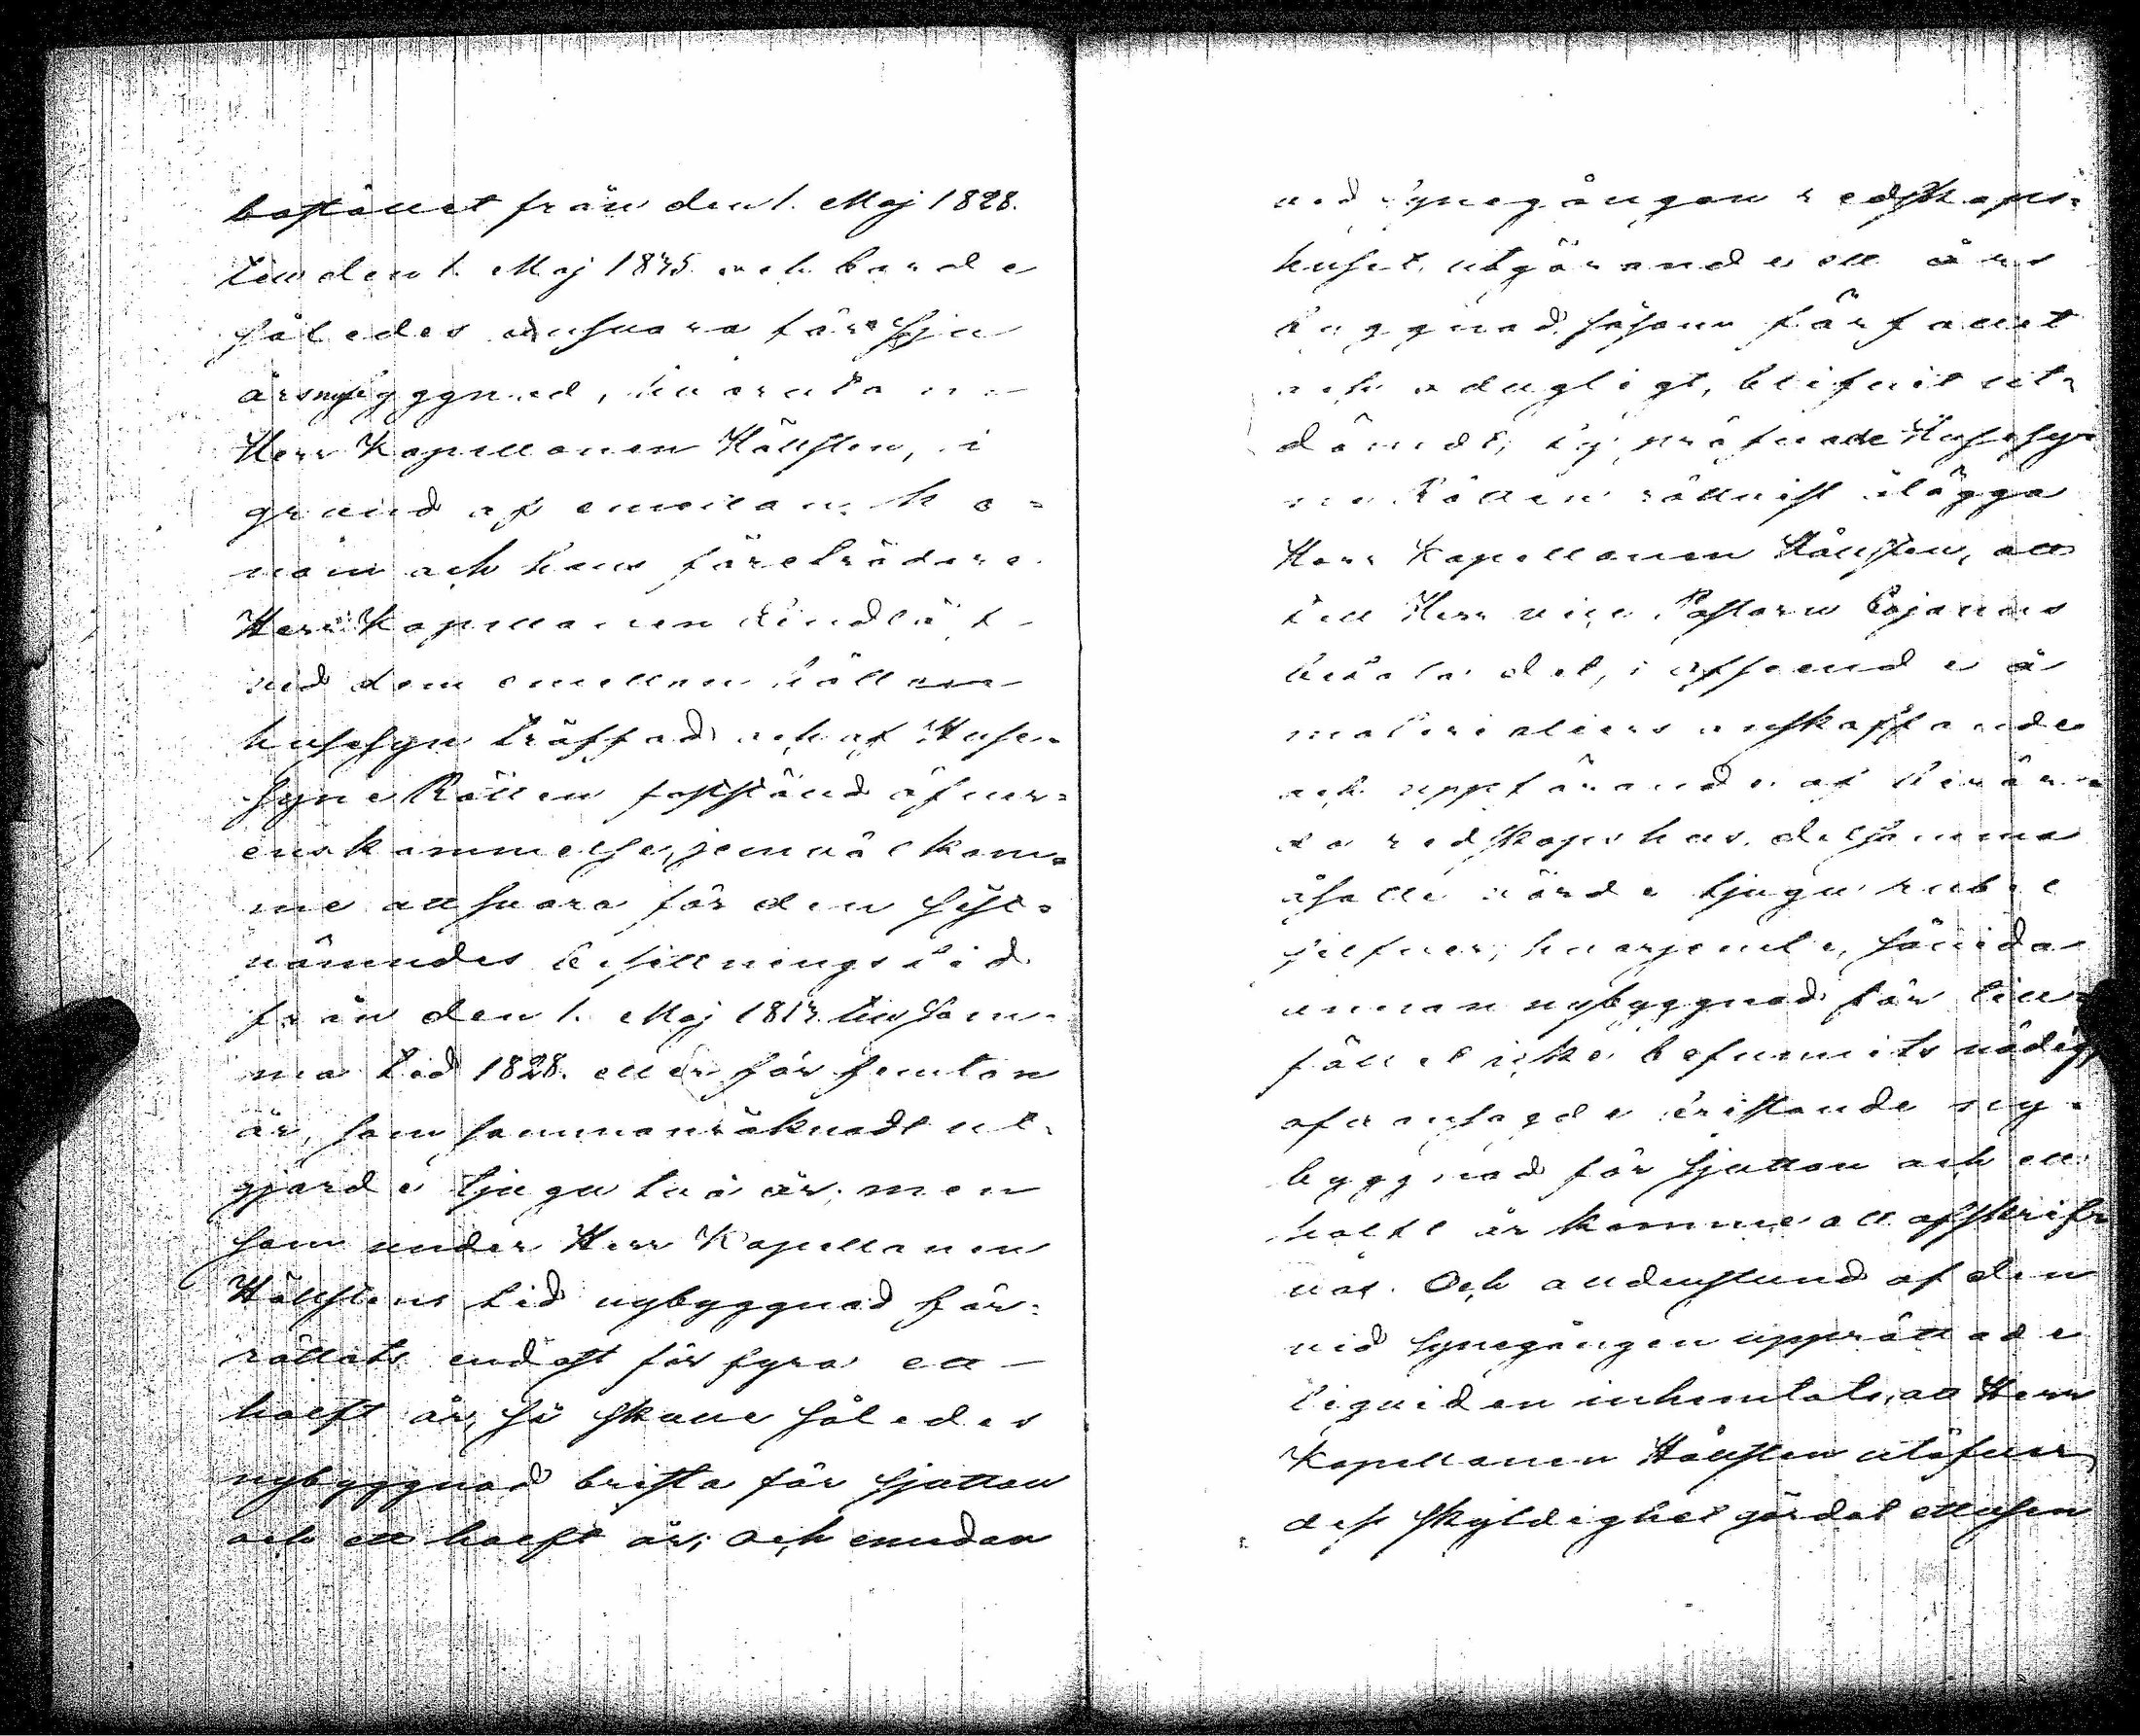 bestället från den 1. Maj 1828.
till den 1. Maj 1835. och borde
således ansvara före sju
års nybyggnad, hvarutan
Herr Kapellanen Hällsten, i
grund af emellan ho=
nom och hans företrädare
Herr Kapellanen Lindlöf
vid dem emellan hållen
husesyn träffad och af Huse=
syne Rätten fastställd öfver=
enskommelse, jemväl kom=
me att svara för den sist=
nämndes beställningstid
från den 1. Maj 1813. till sam=
ma tid 1828. eller för femton
år, som sammanräknadt ut=
gjorde tjugu två år; men
som under Herr Kapellanen
Hällstens tid nybyggnad för=
rättats endast för fyra ett
halft år, så skulle således
nybyggnad brista för sjutton
och ett halft år; och emedan
vid synegången redskaps=
huset, utgörande ett års
byggnad, såsom förfallet
och odugligt, blifvit ut=
dömdt; ty pröfvade Husesy=
ne Rätten rättvist ålägga
Herr Kapellanen Hällsten, att
till Herr vice Pastorn Cajanus
betala det, i afseende å
materialiers anskaffande
och uppförande af berör=
da redskapshus, detsamma
åsatte värde tjugu rubel
silfver; hvarjemte, sävida
annan nybyggnad för till=
fället icke befunnits nödig
ofvansagde bristande ny=
byggnad för sjutton och ett
halft år komme att afskrif=
vas. Och alldenstund af den
vid synegången upprättade
liquiden inhemtats, att Herr
Kapellanen Hällsten utöfver
dess skyldighet gärdat ettusen